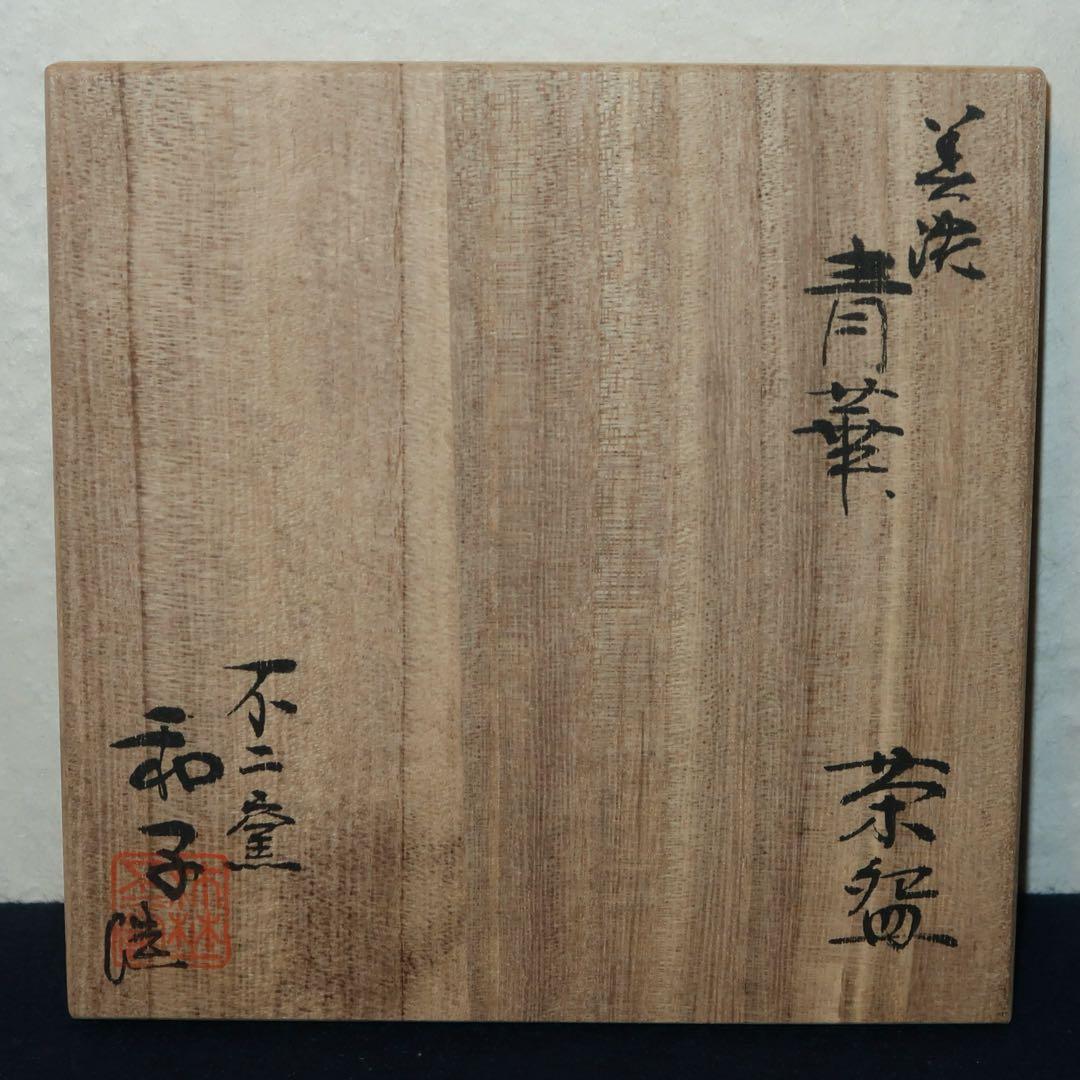 青華
茶盌
不二窯
和子造